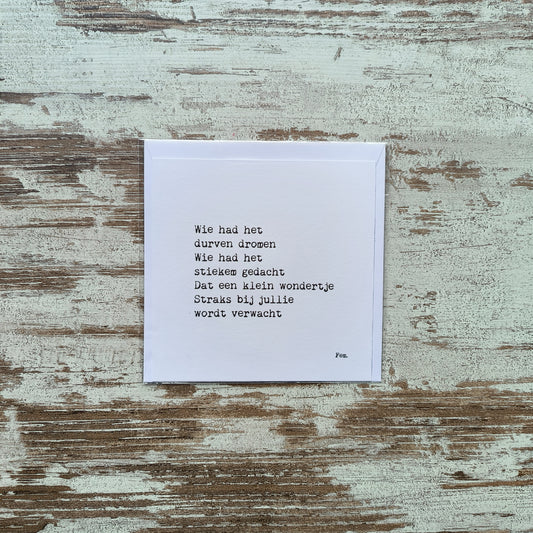 Wie had het
durven dromen
Wie had het
stiekem gedacht
Dat een klein wondertje
Straks bij jullie
wordt verwacht
Fem.